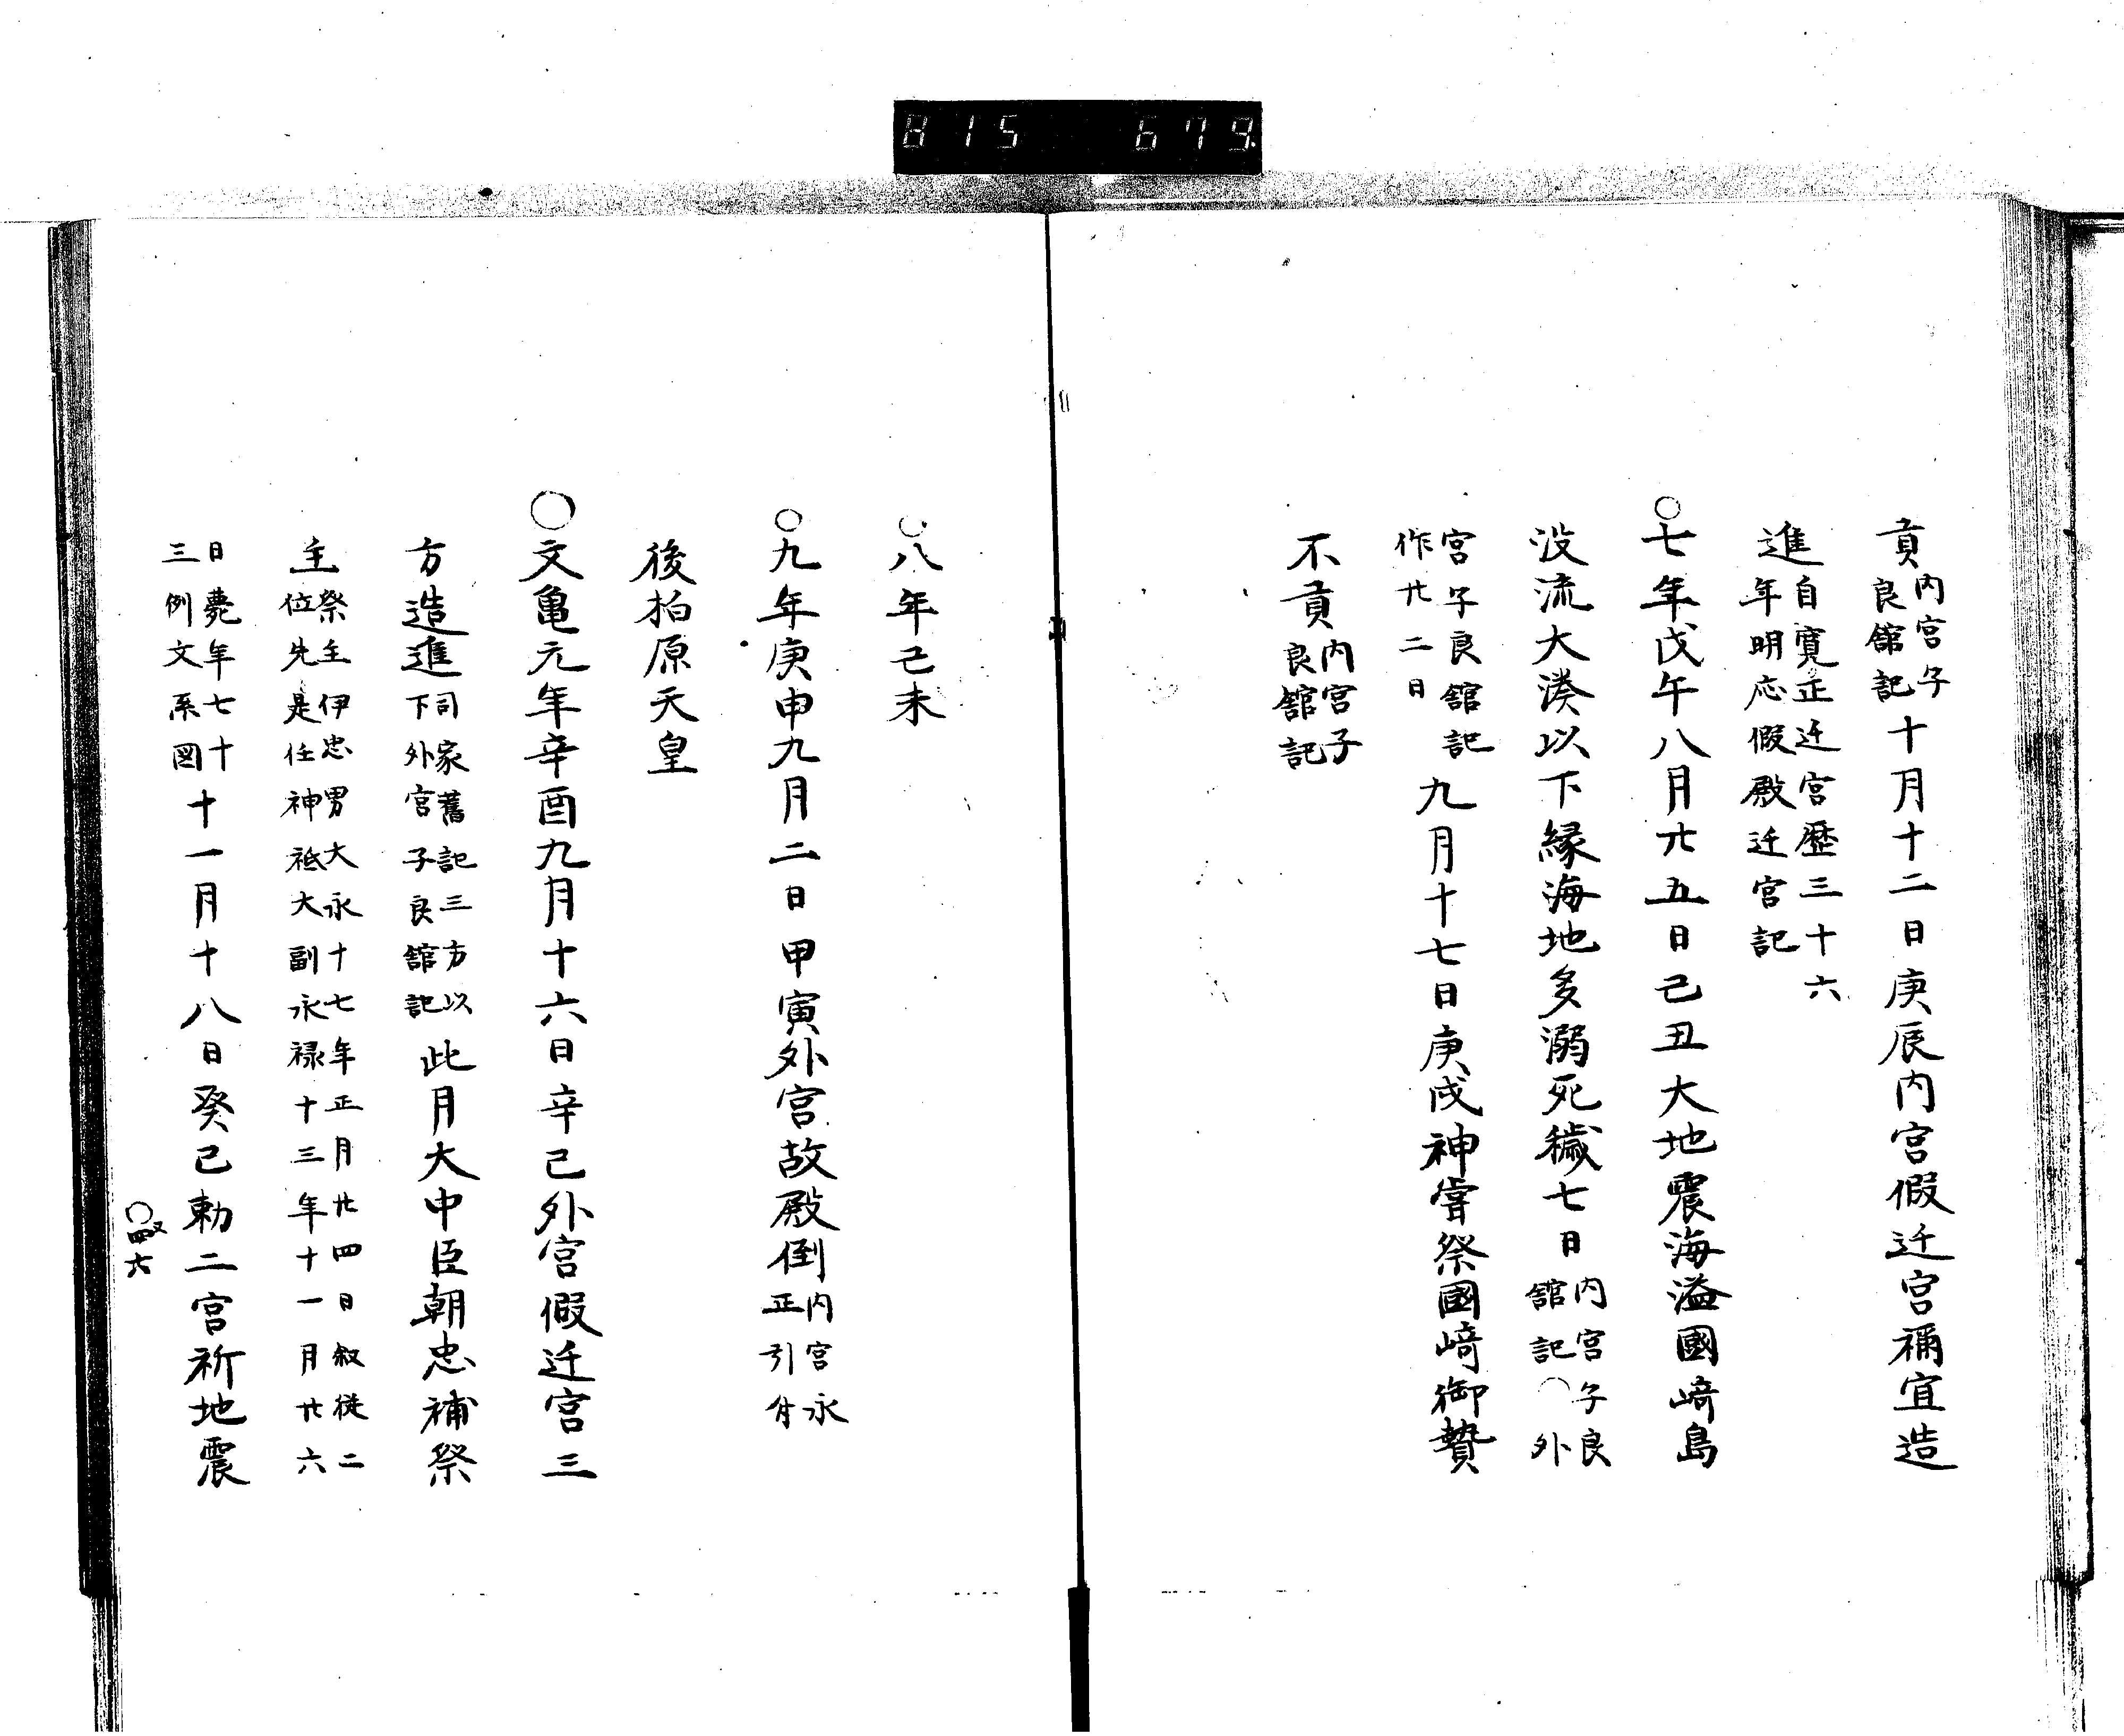 815 679.
貢内宮子良舘記十月十二日庚辰内宮假迁宮禰宜造
進自寛正迁宮歴三十六年明応假殿迁宮記
○七年戊午八月廿五日己丑大地震海溢國﨑島
没流大湊以下縁海地多溺死穢七日内宮子良舘記○外
宮子良舘記作廿二日九月十七日庚戌神甞祭國﨑御贄
不貢内宮子良舘記
○八年己未
○九年庚申九月二日甲寅外宮故殿倒内宮永正引付
後柏原天皇
○文亀元年辛酉九月十六日辛巳外宮假迁宮三
方造進司家舊記三方以下外宮子良舘記此月大中臣朝忠補祭
主祭主伊忠男大永十七年正月廿四日叙従二位先是任神祇大副永禄十三年十一月廿六
日薨年七十三例文系図十一月十八日癸巳勅二宮祈地震
○又四六